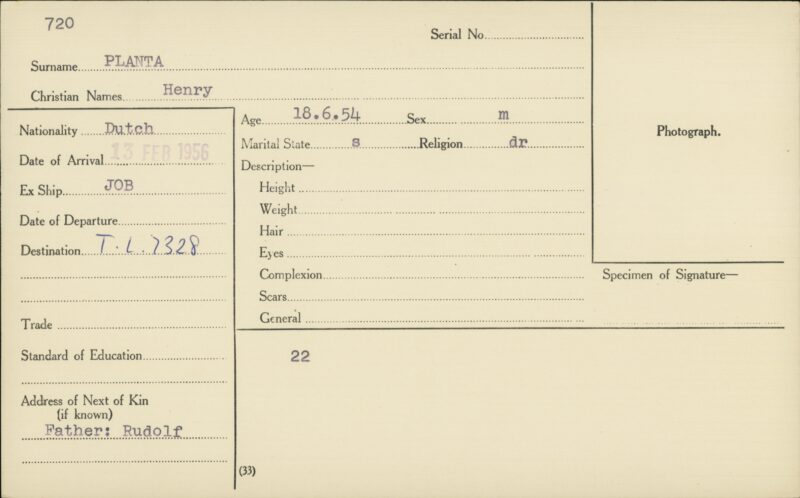 720
Serial No.
Surname PLANTA
Christian Names Henry
Nationality Dutch
Date of Arrival 13 FEB 1956
Ex Ship JOB
Date of Departure
Destination T.L.7328
Trade
Standard of Education
Address of Next of Kin
(if known)
Father: Rudolf
Age 18.6.54 Sex m
Marital State s Religion dr
Description—
Height
Weight
Hair
Eyes
Complexion
Scars
General
22
(33)
Photograph.
Specimen of Signature—